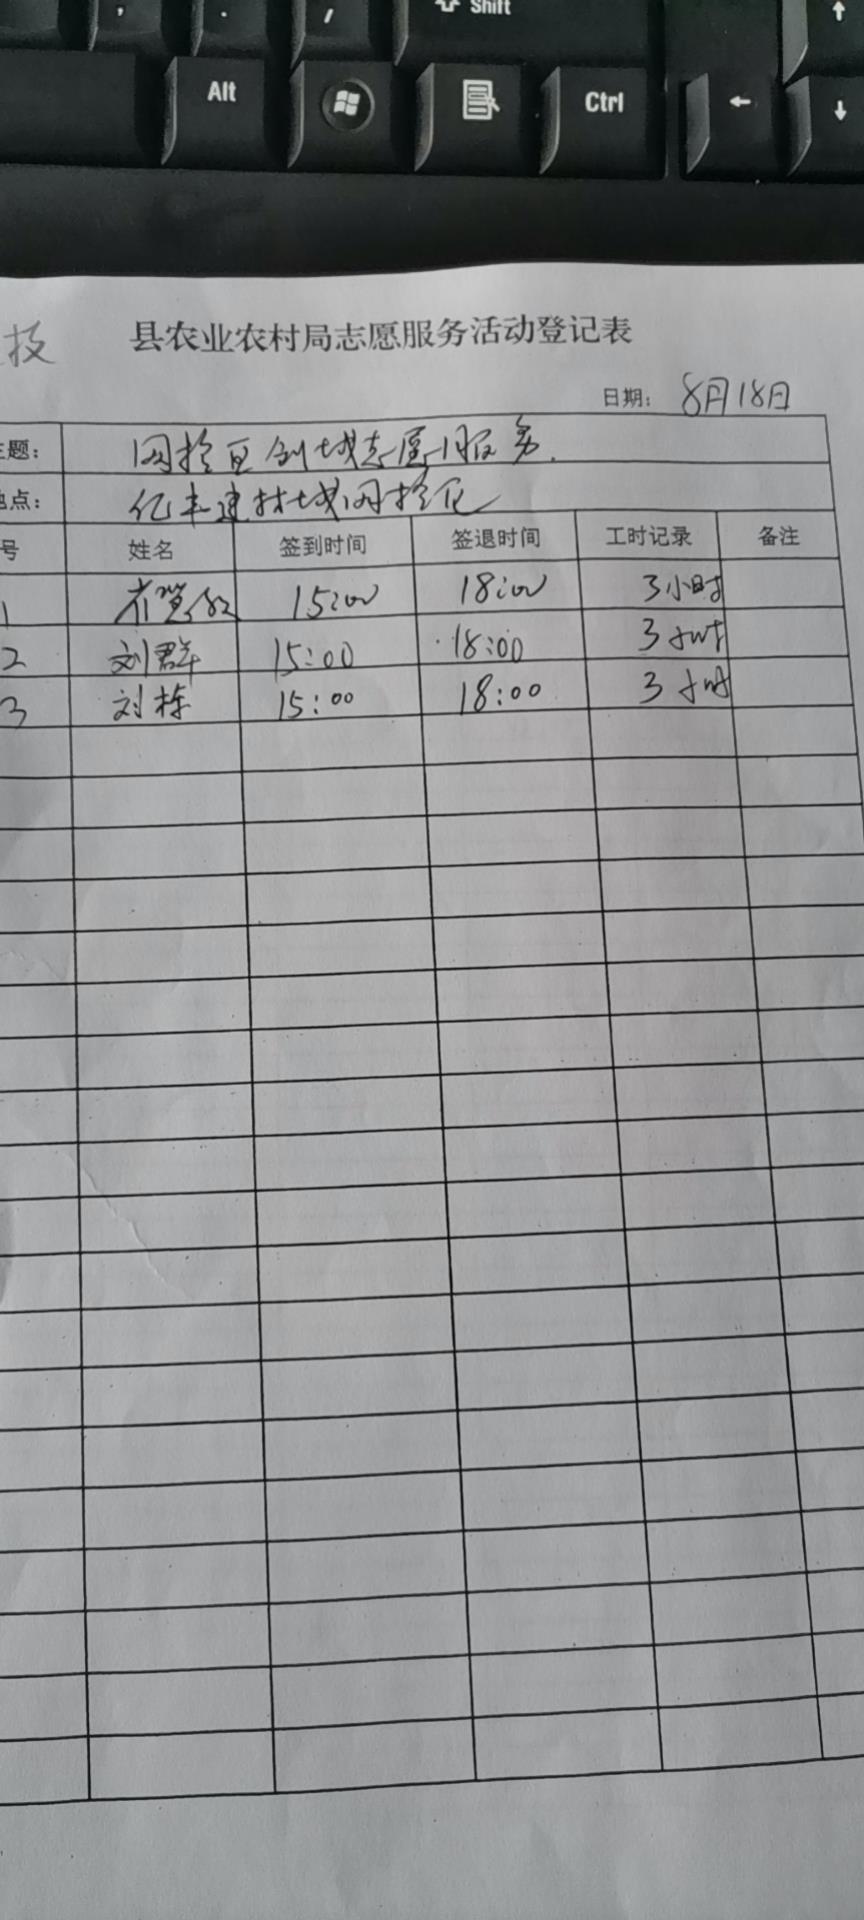 , . / Shift ↑
Alt Ctrl ← ↓
技
县农业农村局志愿服务活动登记表
日期： 8月18日
题： 网格区创城志愿服务.
点： 亿丰建材城网格区
号 姓名 签到时间 签退时间 工时记录 备注
1 15:00 18:00 3小时
2 刘群 15:00 18:00 3小时
3 刘栋 15:00 18:00 3小时